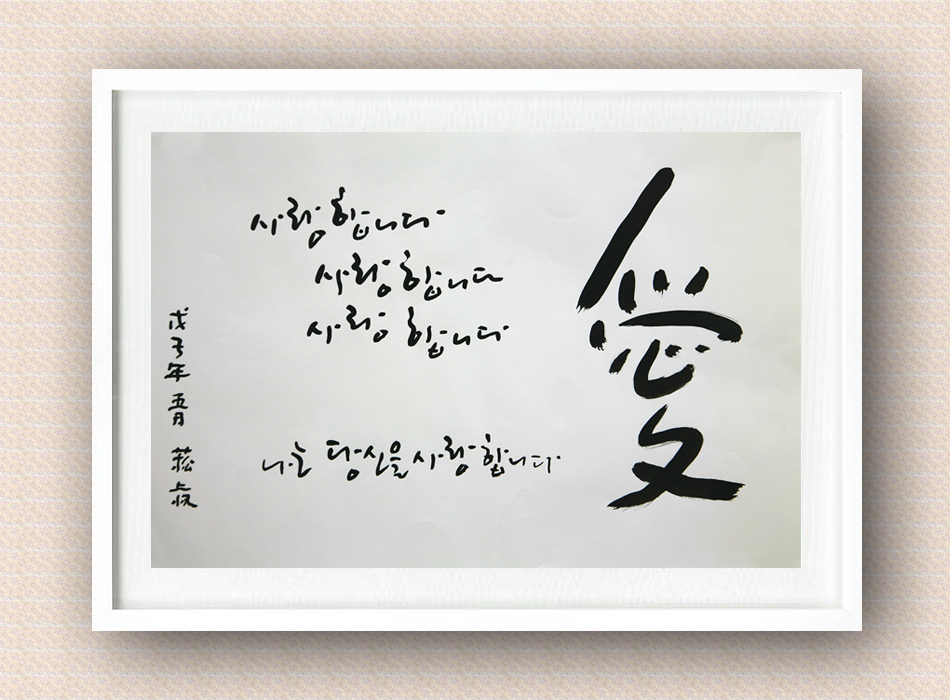 愛
사랑합니다
사랑합니다
사랑합니다
나는 당신을 사랑합니다
戊子年 五月 菘叔